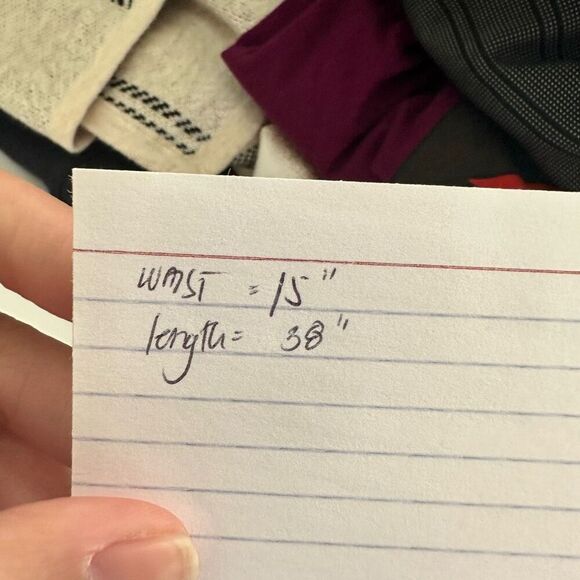 WAIST = 15"
length= 38"